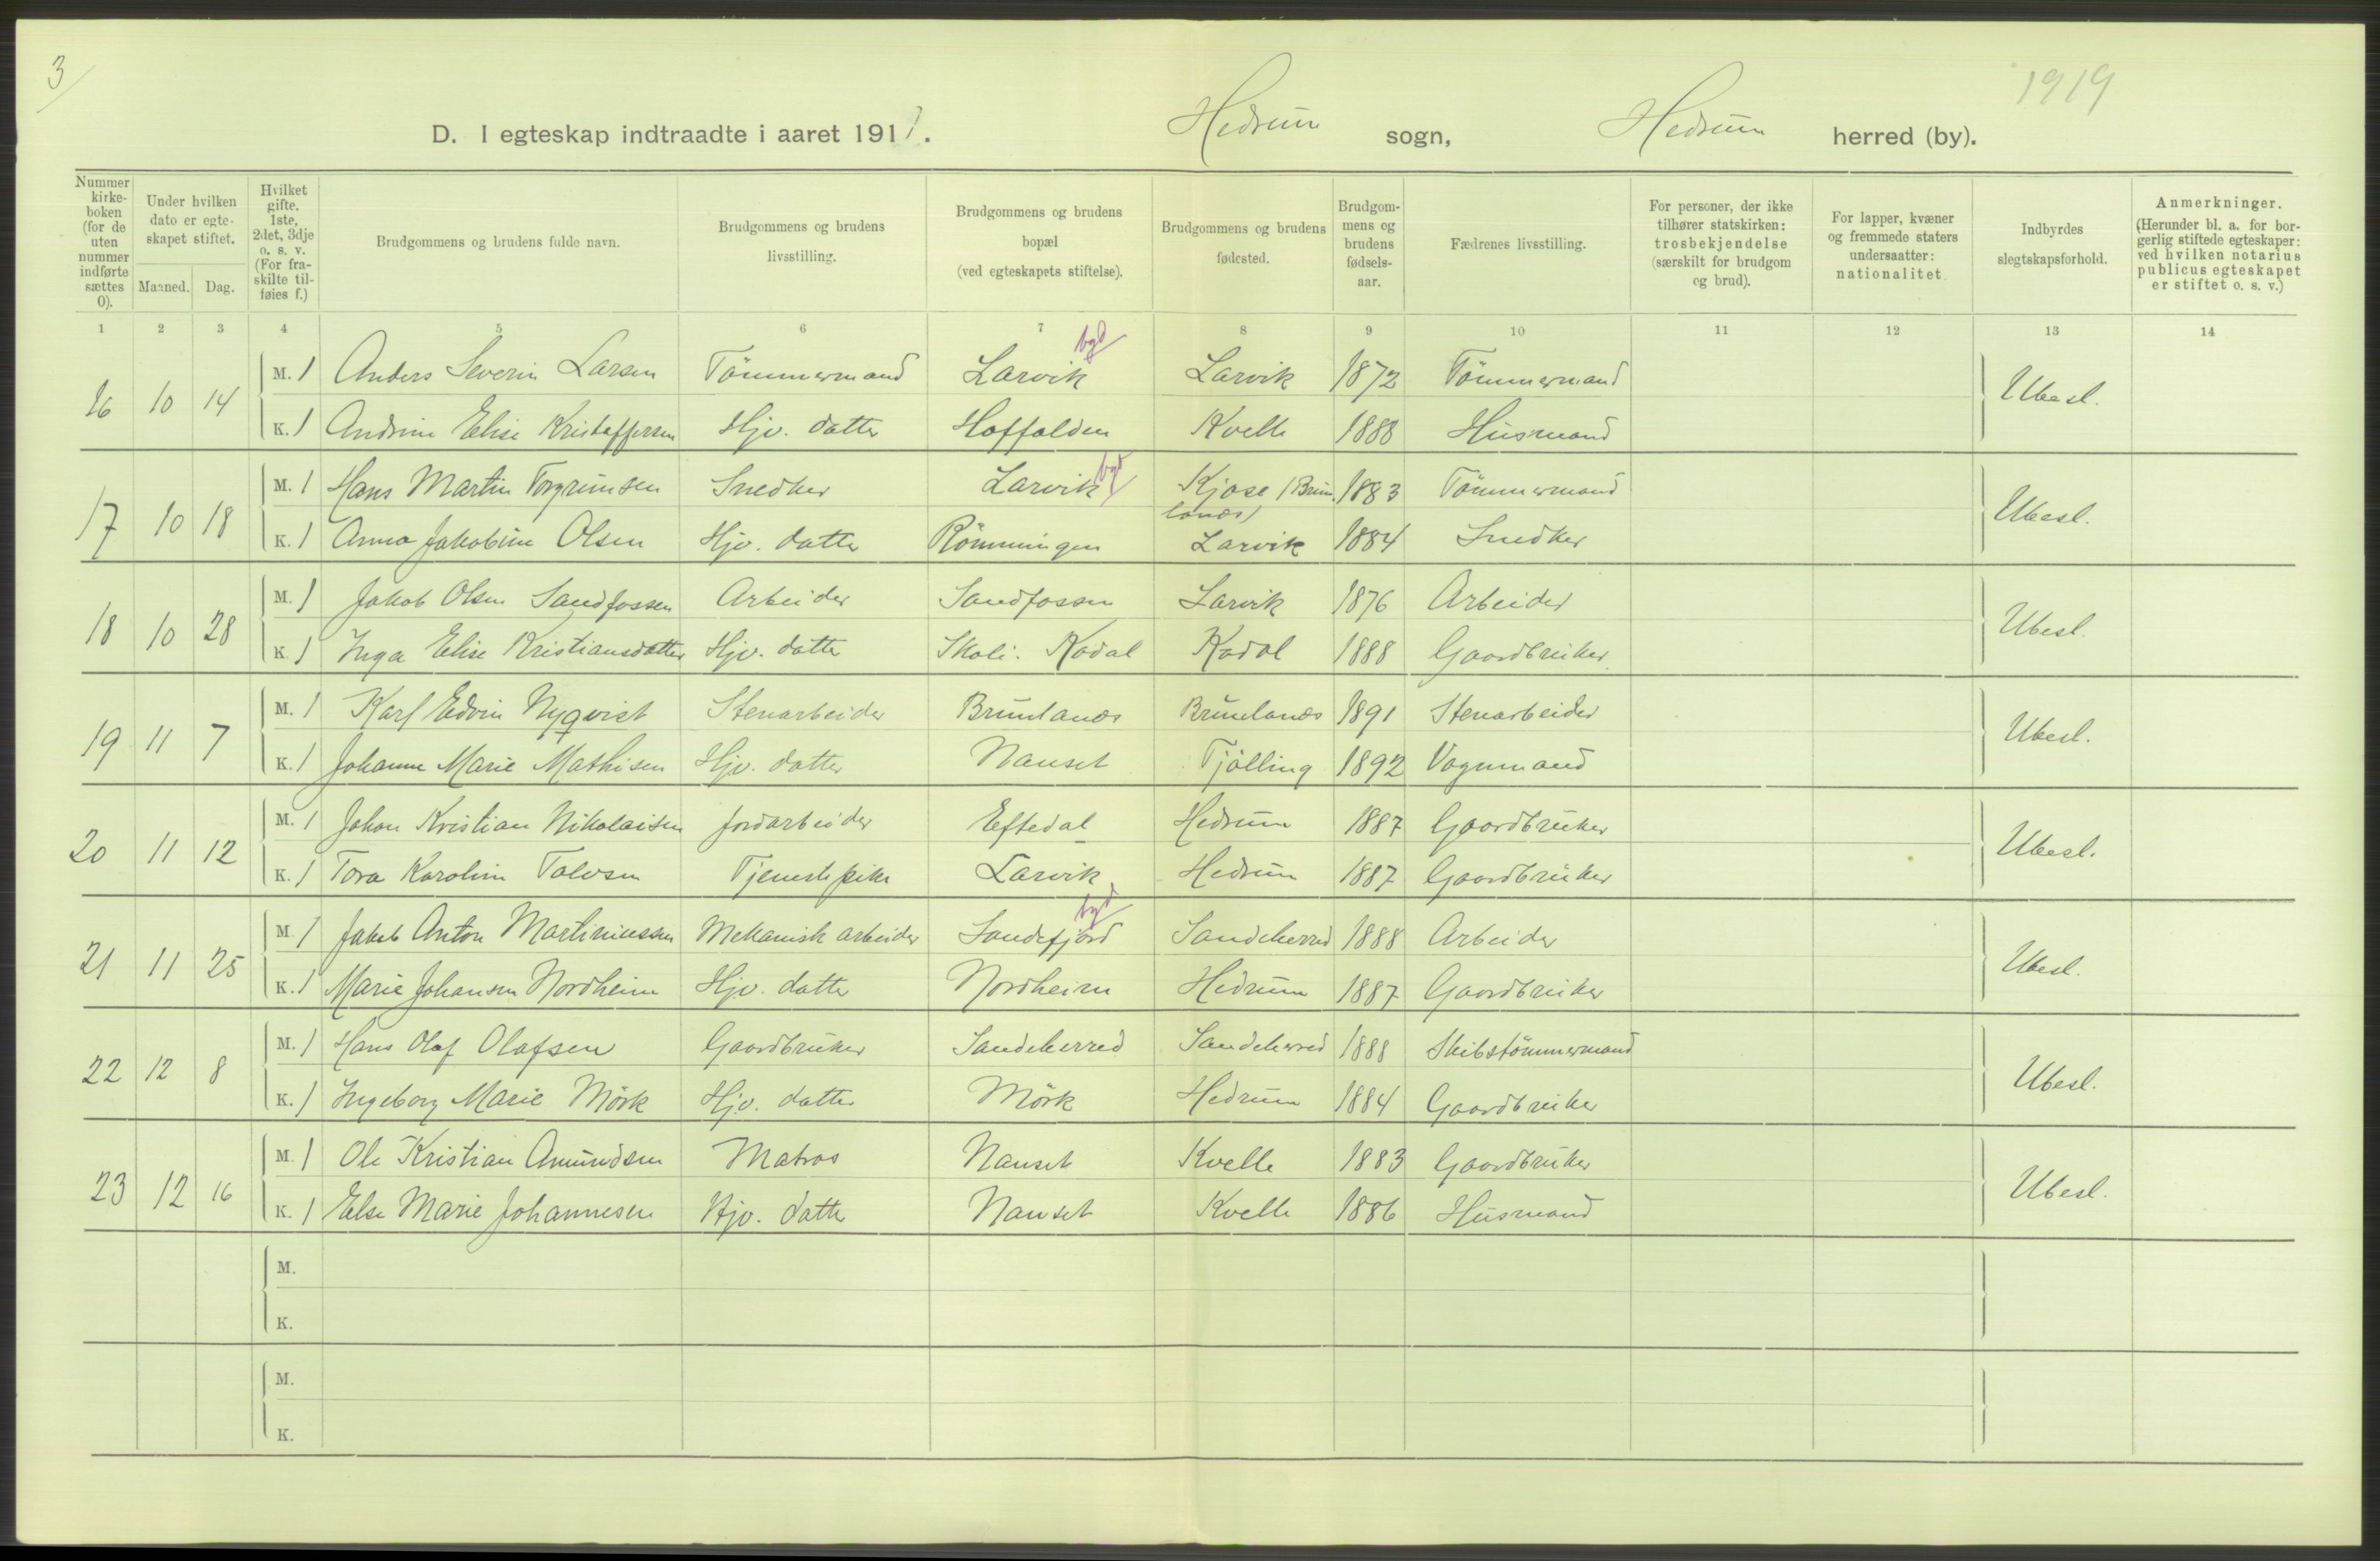 3/
1919
D. I egteskap indtraadte i aaret 1911. Hedrum sogn, Hedrum herred (by).
Nummer kirke-boken (for de uten nummer indførte sættes 0).
Under hvilken dato er egte-skapet stiftet.
Maaned. Dag.
Hvilket gifte. 1ste, 2det, 3dje o. s. v. (For fra-skilte til-føies f.)
Brudgommens og brudens fulde navn.
Brudgommens og brudens livsstilling.
Brudgommens og brudens bopæl (ved egteskapets stiftelse).
Brudgommens og brudens fødested.
Brudgom-mens og brudens fødsels-aar.
Fædrenes livsstilling.
For personer, der ikke tilhører statskirken: trosbekjendelse (særskilt for brudgom og brud).
For lapper, kvæner og fremmede staters undersaatter: nationalitet.
Indbyrdes slegtskapsforhold.
Anmerkninger. (Herunder bl. a. for bor-gerlig stiftede egteskaper: ved hvilken notarius publicus egteskapet er stiftet o. s. v.)
1 2 3 4 5 6 7 8 9 10 11 12 13 14
16 10 14 M. 1 Anders Severin Larsen Tömmermand Larvik byd Larvik 1872 Tömmermand Ubesl.
K. 1 Andrine Elise Kristoffersen Hjv. datter Haffalden Kvelle 1888 Husmand
17 10 18 M. 1 Hans Martin Torgrimsen Snedker Larvik byd Kjose (Brunlanes) 1883 Tömmermand Ubesl.
K. 1 Anna Jakobine Olsen Hjv. datter Römmingen Larvik 1884 Snedker
18 10 28 M. 1 Jakob Olsen Sandfossen Arbeider Sandfossen Larvik 1876 Arbeider Ubesl.
K. 1 Inga Elise Kristiansdatter Hjv. datter Skoli. Kodal Kodal 1888 Gaardbruker
19 11 7 M. 1 Karl Edvin Nyqvist Stenarbeider Brunlanes Brunlanes 1891 Stenarbeider Ubesl.
K. 1 Johanne Marie Mathisen Hjv. datter Nanset Tjölling 1892 Vognmand
20 11 12 M. 1 Johan Kristian Nikolaisen Jordarbeider Eftedal Hedrum 1887 Gaardbruker Ubesl.
K. 1 Tora Karoline Talvsen Tjenestepike Larvik Hedrum 1887 Gaardbruker
21 11 25 M. 1 Jakob Anton Martiniussen Mekanisk arbeider Sandefjord byd Sandeherred 1888 Arbeider Ubesl.
K. 1 Marie Johansen Nordheim Hjv. datter Nordheim Hedrum 1887 Gaardbruker
22 12 8 M. 1 Hans Olaf Olafsen Gaardbruker Sandeherred Sandeherred 1888 Skibstömmermand Ubesl.
K. 1 Ingeborg Marie Mörk Hjv. datter Mörk Hedrum 1884 Gaardbruker
23 12 16 M. 1 Ole Kristian Amundsen Matros Nanset Kvelle 1883 Gaardbruker Ubesl.
K. 1 Else Marie Johannesen Hjv. datter Nanset Kvelle 1886 Husmand
M.
K.
M.
K.